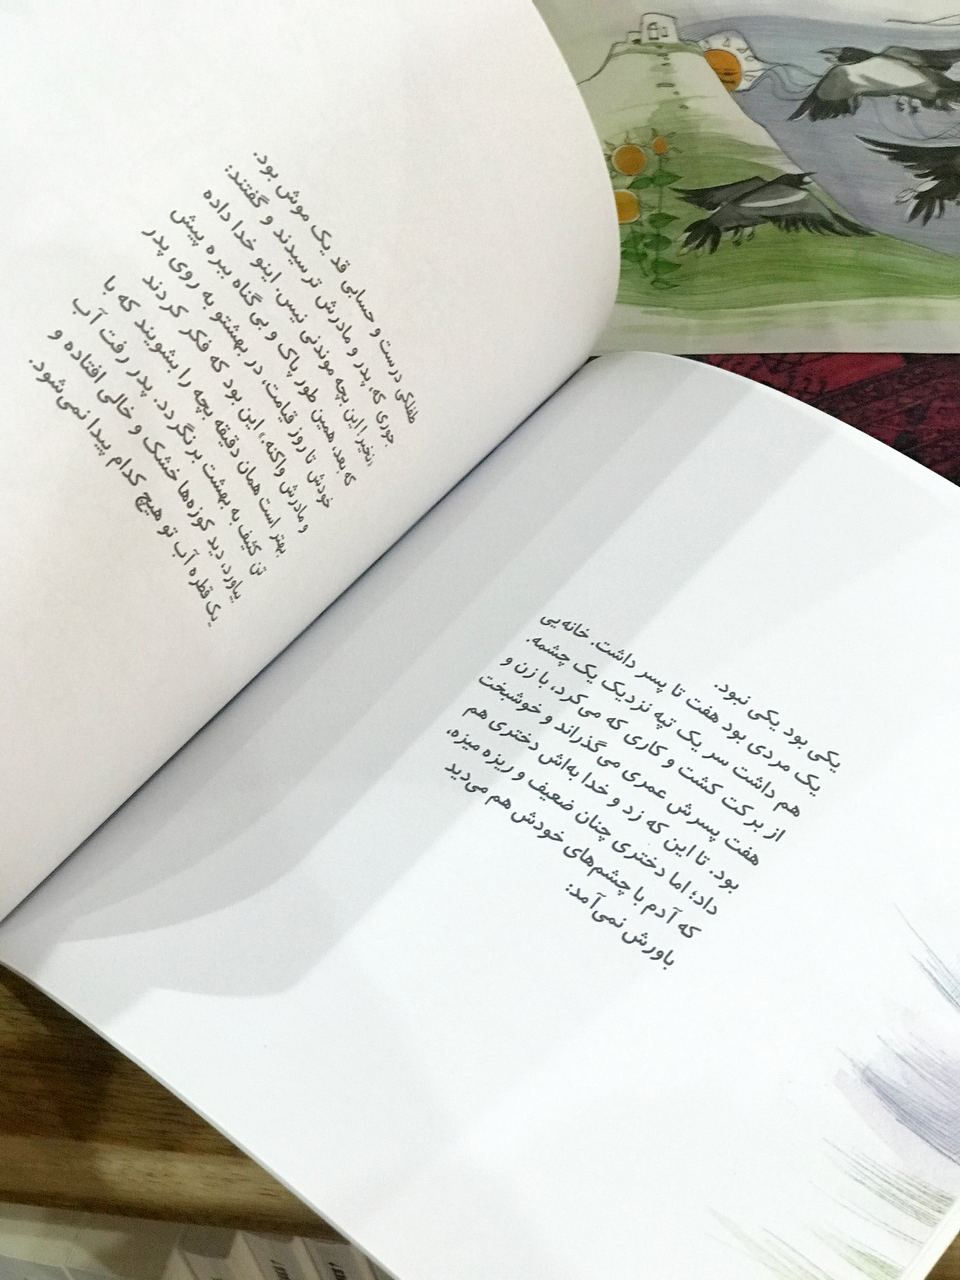 یکی بود یکی نبود.
یک مردی بود هفت تا پسر داشت. خانه‌یی
هم داشت سر یک تپه نزدیک یک چشمه.
از برکت کشت و کاری که می‌کرد، با زن و
هفت پسرش عمری می‌گذراند و خوشبخت
بود. تا این که زد و خدا به‌اش دختری هم
داد؛ اما دختری چنان ضعیف و ریزه میزه،
که آدم با چشم‌های خودش هم می‌دید
باورش نمی‌آمد:
طفلکی درست و حسابی قد یک موش بود.
جوری که، پدر و مادرش ترسیدند و گفتند:
«نخیر! این بچه موندنی نیس. اینو خدا داده
که بعد، همین طور پاک و بی گناه ببره پیش
خودش تا روز قیامت، در بهشتو به روی پدر
و مادرش واکنه.» این بود که فکر کردند
بهتر است همان دقیقه بچه را بشویند که با
تن کثیف به بهشت برنگردد. پدر رفت آب
بیاورد، دید کوزه‌ها خشک و خالی افتاده و
یک قطره آب تو هیچ کدام پیدا نمی‌شود.